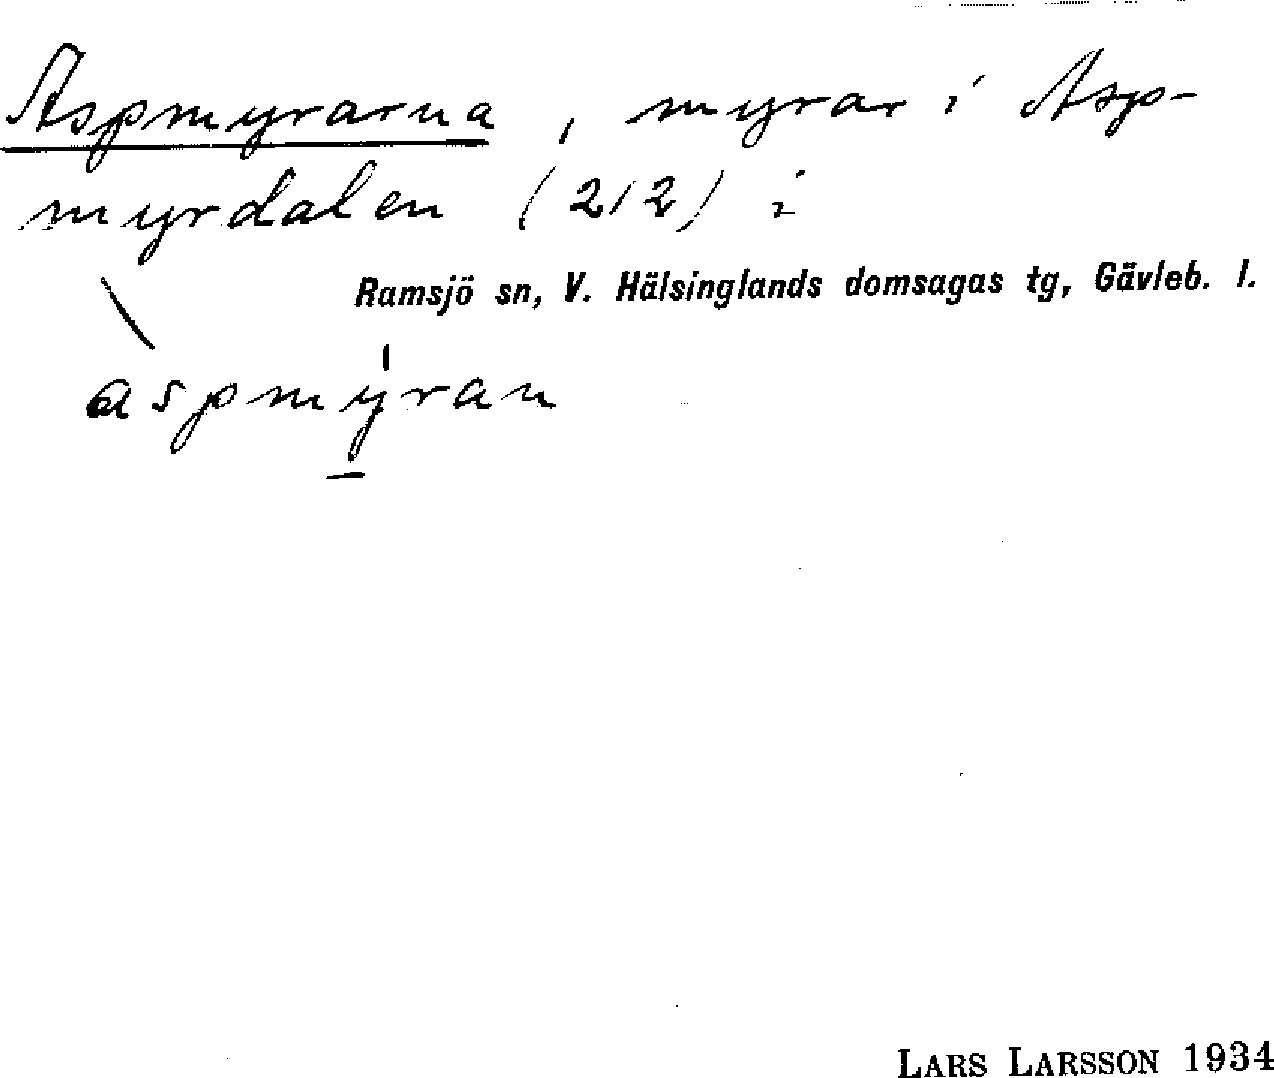 Aspmyrarna, myrar i Asp-
myrdalen (212) i
Ramsjö sn, V. Hälsinglands domsagas tg, Gävleb. l.
aspmyran
LARS LARSSON 1934